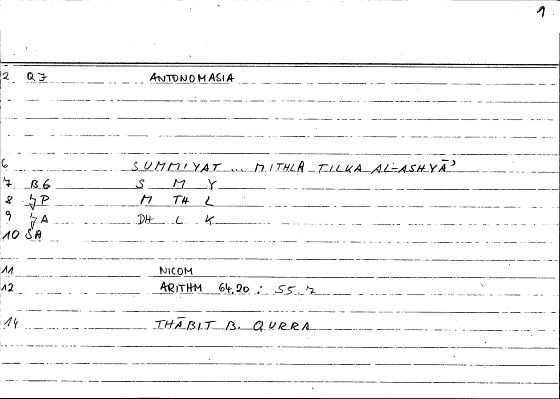 1
2 Q7 ANTONOMASIA
6 SUMMIYAT ... MITHLA TILKA AL-ASHYĀʾ
7 BG S M Y
8 P M TH L
9 A DH L K
10 SA
11 NICOM
12 ARITHM 64.20 : 55.
14 THĀBIT B. QURRA